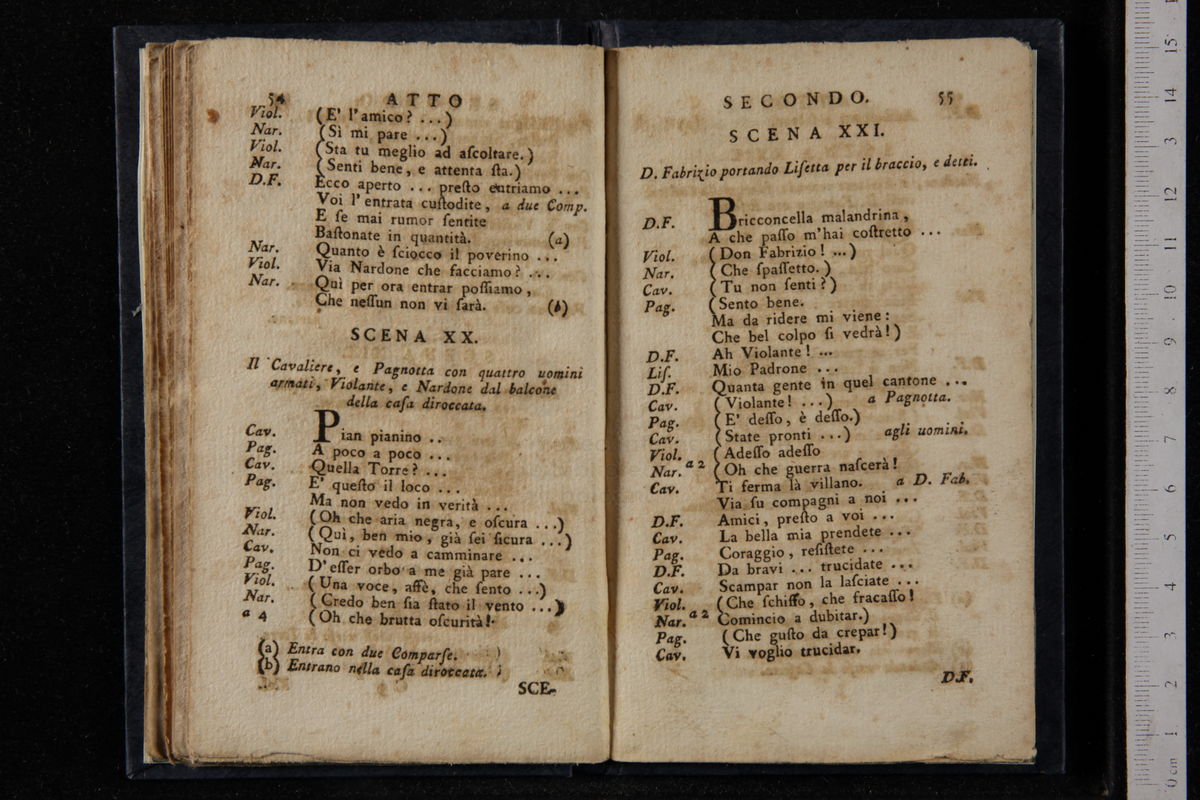 54 ATTO
Viol. (E' l'amico? ...)
Nar. (Sì mi pare ...)
Viol. (Sta tu meglio ad aſcoltare.)
Nar. (Senti bene, e attenta ſta.)
D.F. Ecco aperto ... preſto entriamo ...
Voi l'entrata cuſtodite, a due Comp.
E ſe mai rumor ſentite
Baſtonate in quantità. (a)
Nar. Quanto è ſciocco il poverino ...
Viol. Via Nardone che facciamo? ...
Nar. Quì per ora entrar poſſiamo,
Che neſſun non vi ſarà. (b)
SCENA XX.
Il Cavaliere, e Pagnotta con quattro uomini
armati, Violante, e Nardone dal balcone
della caſa diroccata.
Cav. Pian pianino ..
Pag. A poco a poco ...
Cav. Quella Torre? ...
Pag. E' queſto il loco ...
Ma non vedo in verità ...
Viol. (Oh che aria negra, e oſcura ...)
Nar. (Quì, ben mio, già ſei ſicura ...)
Cav. Non ci vedo a camminare ...
Pag. D'eſſer orbo a me già pare ...
Viol. (Una voce, affè, che ſento ...)
Nar. (Credo ben ſia ſtato il vento ...)
a 4 (Oh che brutta oſcurità!
(a) Entra con due Comparſe.
(b) Entrano nella caſa diroccata.
SCE-
SECONDO. 55
SCENA XXI.
D. Fabrizio portando Liſetta per il braccio, e detti.
D.F. Bricconcella malandrina,
A che paſſo m'hai coſtretto ...
Viol. (Don Fabrizio! ...)
Nar. (Che ſpaſſetto.)
Cav. (Tu non ſenti?)
Pag. (Sento bene.
Ma da ridere mi viene:
Che bel colpo ſi vedrà!)
D.F. Ah Violante! ...
Liſ. Mio Padrone ...
D.F. Quanta gente in quel cantone ...
Cav. (Violante! ...) a Pagnotta.
Pag. (E' deſſo, è deſſo.)
Cav. (State pronti ...) agli uomini.
Viol. (Adeſſo adeſſo
Nar. a 2 (Oh che guerra naſcerà!
Cav. Ti ferma là villano. a D. Fab.
Via ſu compagni a noi ...
D.F. Amici, preſto a voi ...
Cav. La bella mia prendete ...
Pag. Coraggio, reſiſtete ...
D.F. Da bravi ... trucidate ...
Cav. Scampar non la laſciate ...
Viol. (Che ſchiffo, che fracaſſo!
Nar. a 2 Comincio a dubitar.)
Pag. (Che guſto da crepar!)
Cav. Vi voglio trucidar.
D.F.
0 cm 1 2 3 4 5 6 7 8 9 10 11 12 13 14 15